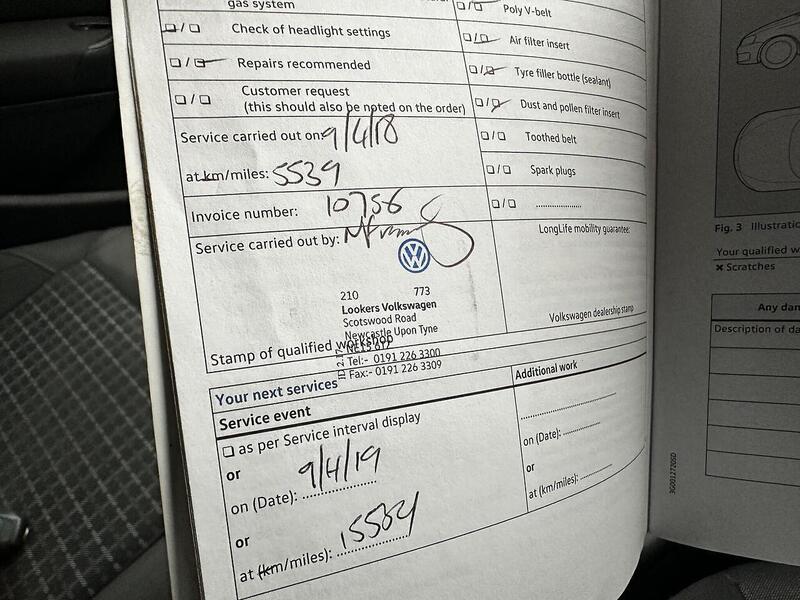 gas system
Check of headlight settings
Repairs recommended
Customer request
(this should also be noted on the order)
Service carried out on 9/4/18
at km/miles: 5539
Invoice number: 10756
Service carried out by:
210 773
Lookers Volkswagen
Scotswood Road
Newcastle Upon Tyne
NE15 6TZ
Tel:- 0191 226 3300
Fax:- 0191 226 3309
Stamp of qualified workshop
Poly V-belt
Air filter insert
Tyre filler bottle (sealant)
Dust and pollen filter insert
Toothed belt
Spark plugs
LongLife mobility guarantee:
Volkswagen dealership stamp
Your next services
Service event
as per Service interval display
or
on (Date): 9/4/19
or
at (km/miles): 15584
Additional work
on (Date):
or
at (km/miles):
Fig. 3 Illustratio
Your qualified w
× Scratches
Any dam
Description of da
3G0012720SD